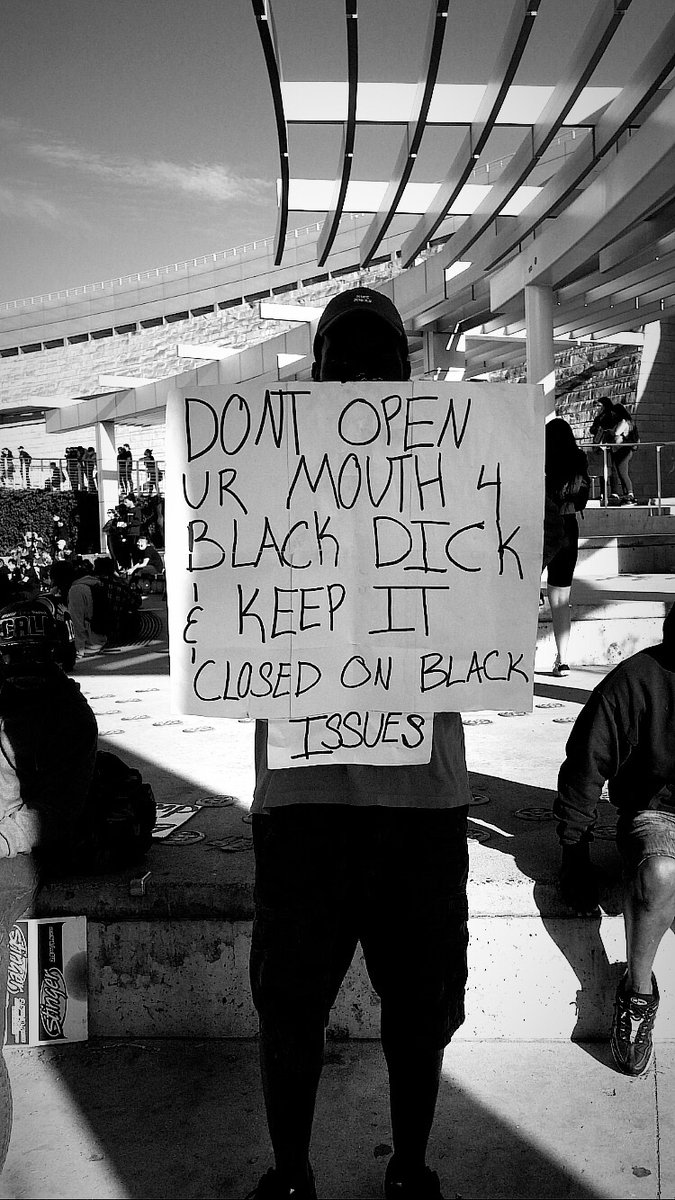 DONT OPEN
UR MOUTH 4
BLACK DICK
& KEEP IT
CLOSED ON BLACK
ISSUES
CALI
Stinger
Stinger